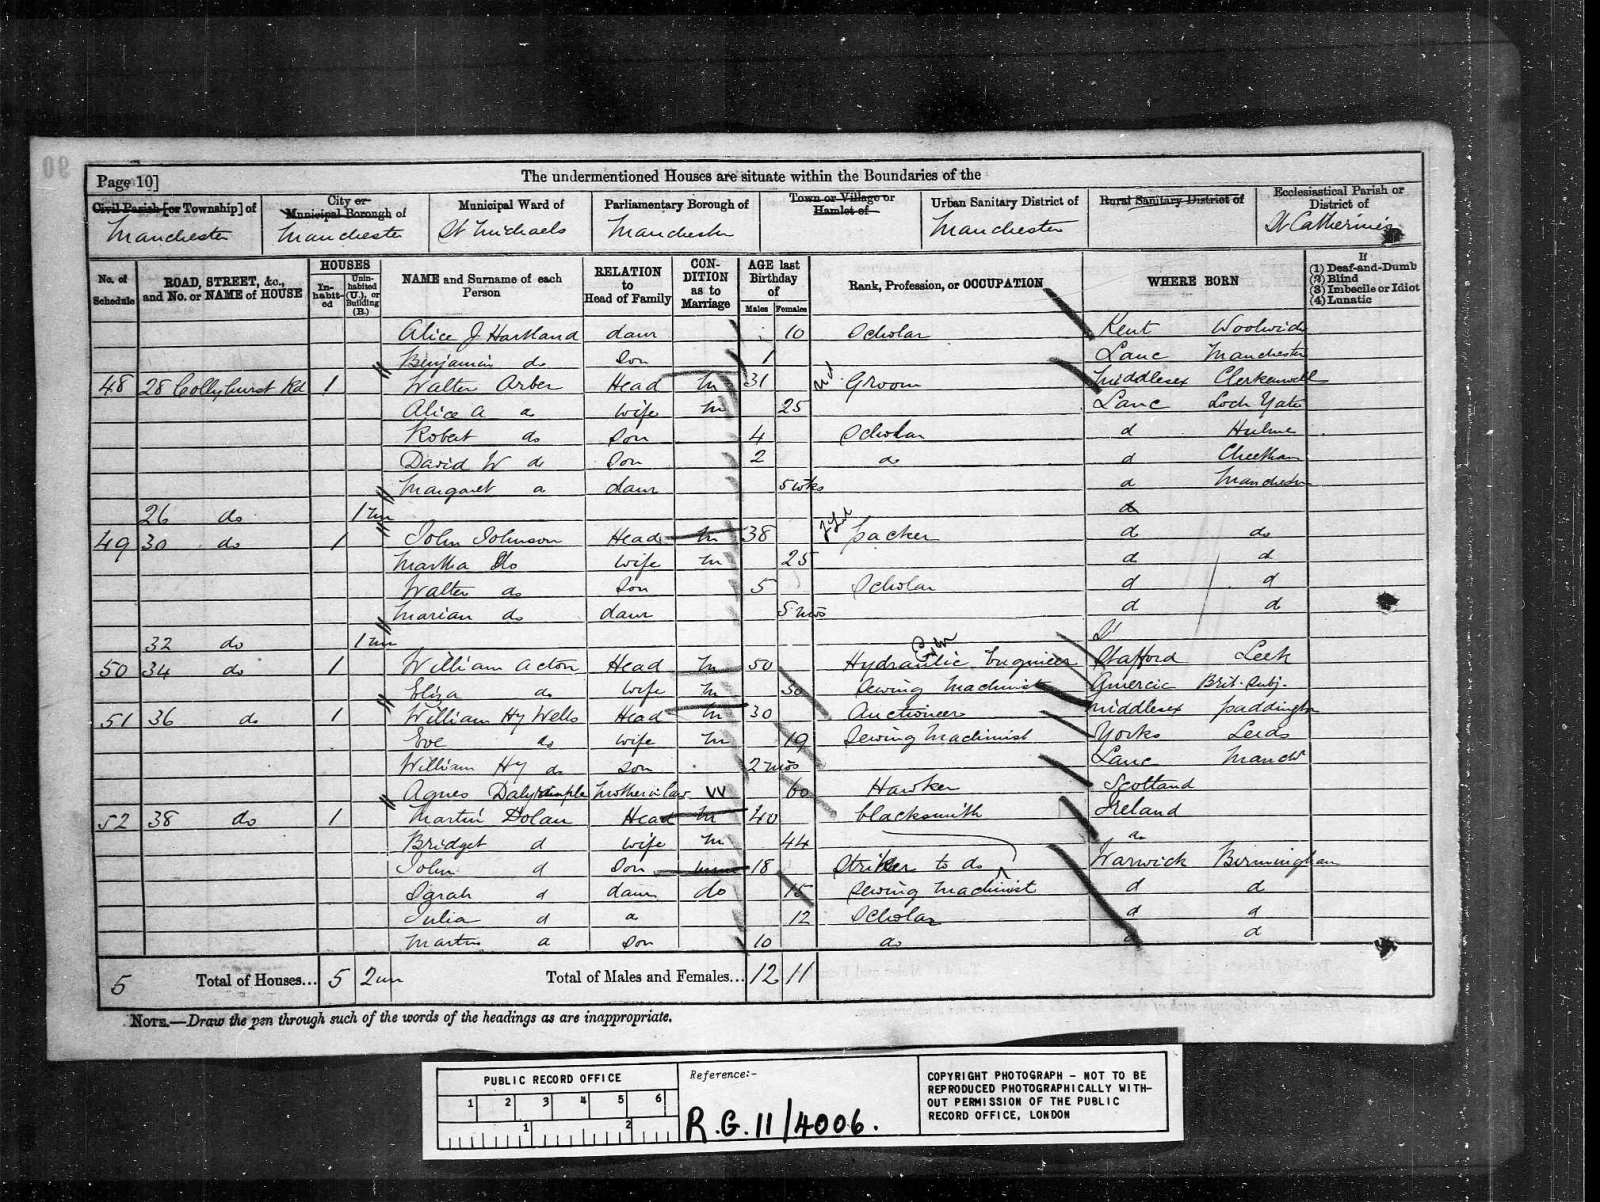 Page 10]
The undermentioned Houses are situate within the Boundaries of the
Civil Parish [or Township] of
City or Municipal Borough of
Municipal Ward of
Parliamentary Borough of
Town or Village or Hamlet of
Urban Sanitary District of
Rural Sanitary District of
Ecclesiastical Parish or District of
Manchester Manchester St Michaels Manchester Manchester St Catherines
No. of Schedule
ROAD, STREET, &c., and No. or NAME of HOUSE
HOUSES
In-habit-ed
Unin-habited (U.), or Building (B.)
NAME and Surname of each Person
RELATION to Head of Family
CON-DITION as to Marriage
AGE last Birthday of
Males Females
Rank, Profession, or OCCUPATION
WHERE BORN
If
(1) Deaf-and-Dumb
(2) Blind
(3) Imbecile or Idiot
(4) Lunatic
Alice J Hartland daur 10 Scholar Kent Woolwich
Benjamin do Son 1 Lanc Manchester
48 28 Collyhurst Rd 1 Walter Arber Head M 31 Groom Middlesex Clerkenwell
Alice A do wife M 25 Lanc
Robert do Son 4 Scholar d Hulme
David W do Son 2 do d Cheetham
Margaret d daur 5 wks d Manchester
26 do 1 un d
49 30 do 1 John Johnson Head M 38 packer d do
Martha do wife M 25 d d
Walter do Son 5 Scholar d d
Marian do daur 5 mos d d
32 do 1 un
50 34 do 1 William Acton Head M 50 Hydraulic Engineer Stafford Leek
Eliza do wife M 50 Sewing Machinist Americ Brit. Subj.
51 36 do 1 William Hy Wells Head M 30 Auctioneer Middlesex Paddington
Eve do wife M 19 Sewing Machinist Yorks Leeds
William Hy do Son 2 mos Lanc Manchr
Agnes Dalrymple Mother in law W 60 Hawker Scotland
52 38 do 1 Martin Dolan Head M 40 blacksmith Ireland
Bridget d wife M 44 do
John d Son unm 18 Striker to do Warwick Birmingham
Sarah d daur do 15 Sewing Machinist d d
Julia d d 12 Scholar d d
Martin d Son 10 do d d
5 Total of Houses... 5 2un Total of Males and Females... 12 11
NOTE.—Draw the pen through such of the words of the headings as are inappropriate.
PUBLIC RECORD OFFICE
1 2 3 4 5 6
1 2
Reference:-
R.G.11/4006.
COPYRIGHT PHOTOGRAPH – NOT TO BE
REPRODUCED PHOTOGRAPHICALLY WITH-
OUT PERMISSION OF THE PUBLIC
RECORD OFFICE, LONDON